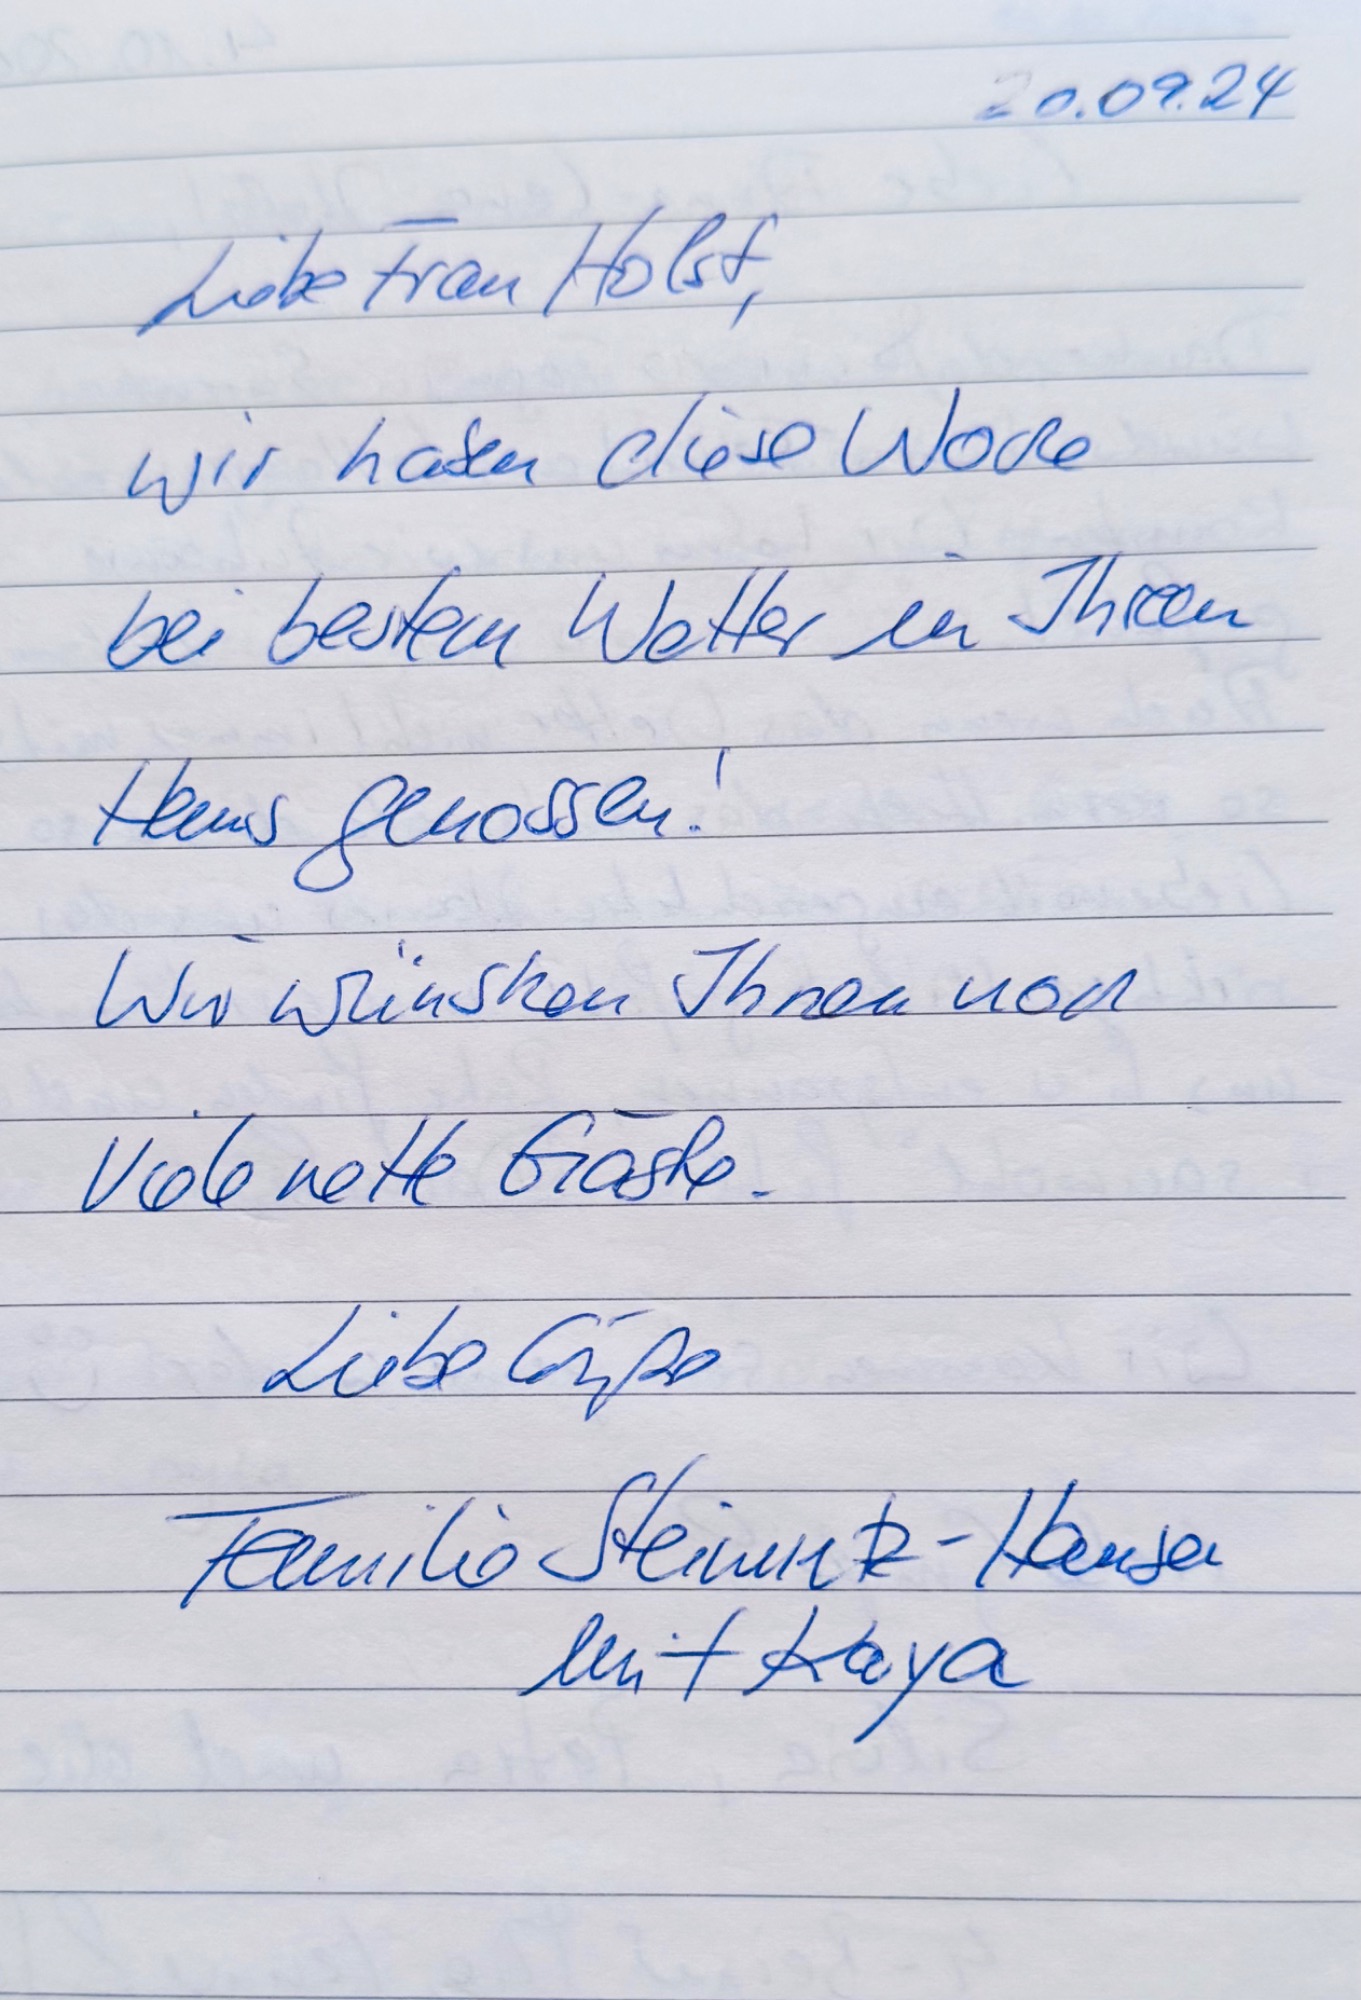 20.09.24
Liebe Frau Holst,
wir haben diese Woche
bei bestem Wetter in Ihrem
Haus genossen!
Wir wünschen Ihnen noch
viele nette Gäste.
Liebe Grüße
Familie Steinunk-Hansen
mit Kaya